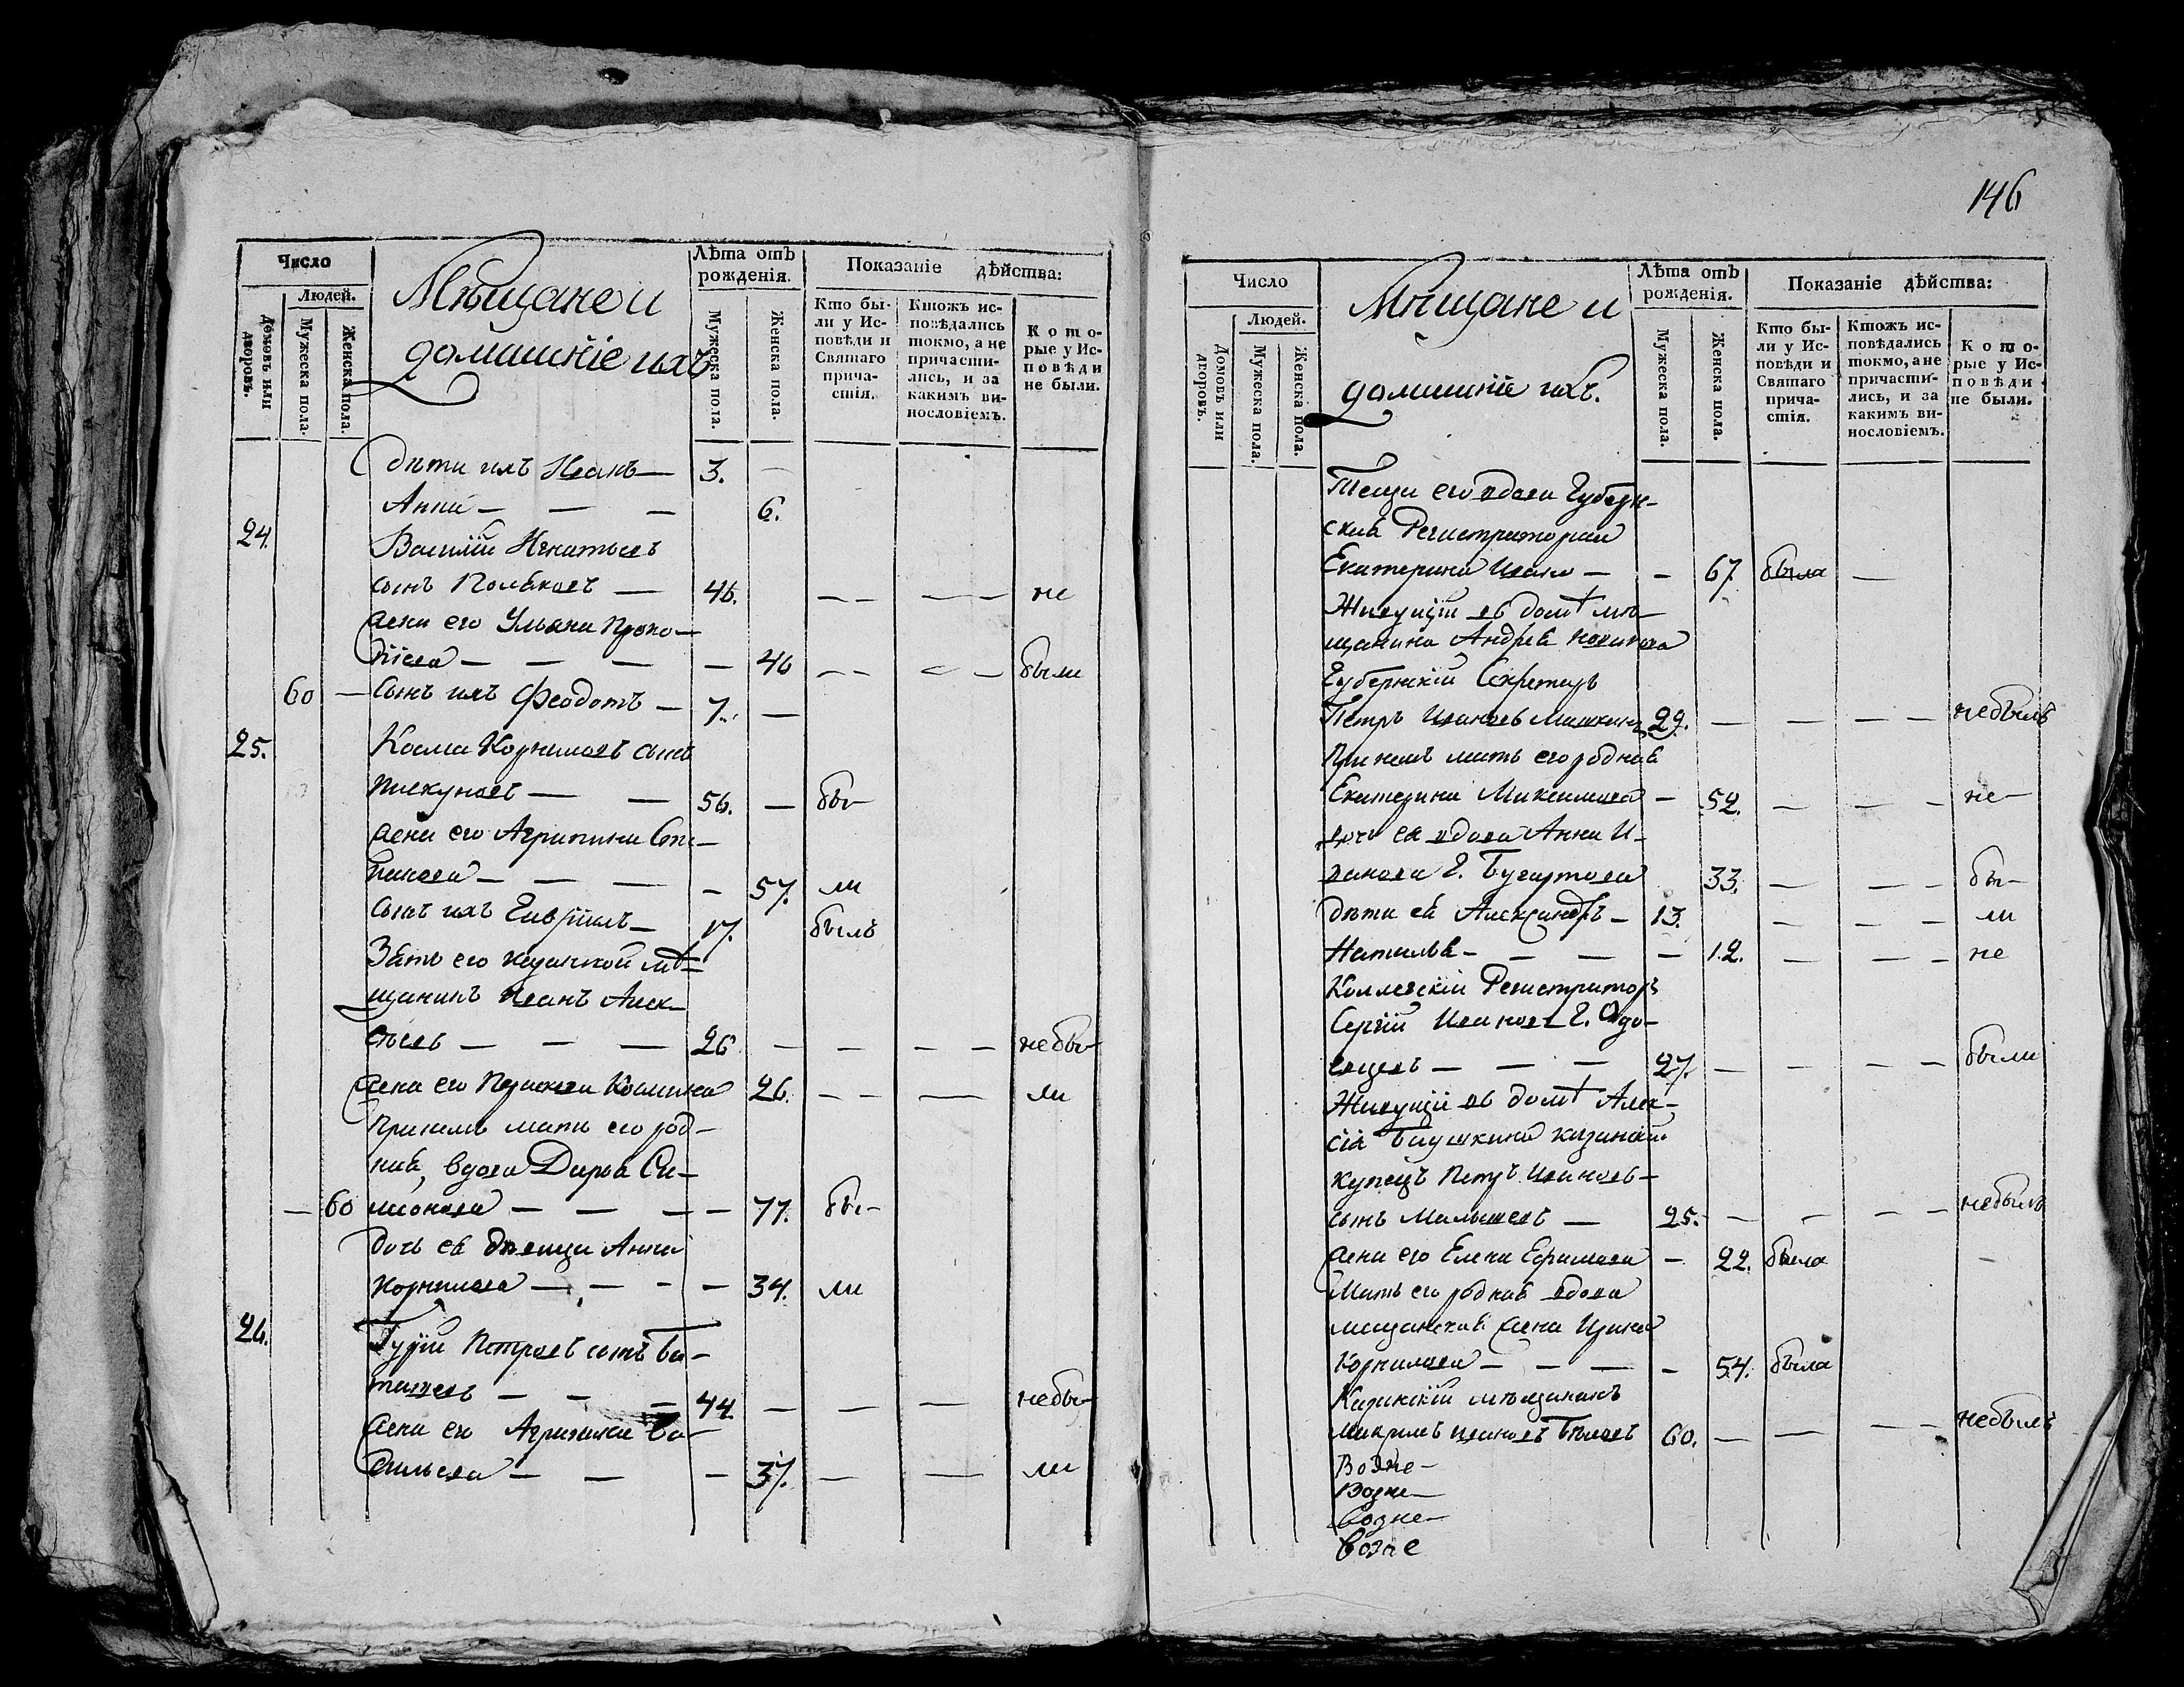 Число
Людей.
Домовъ или дворовъ.
Мужеска пола.
Женска пола.
Мѣщане и
домашніе ихъ
Лѣта отъ рожденія.
Мужеска пола.
Женска пола.
Показаніе дѣйства:
Кто бы-
ли у Ис-
повѣди и
Святаго
прича-
стія.
Ктожъ ис-
повѣдались
токмо, а не
причасти-
лись, и за
какимъ ви-
нословіемъ.
Кото-
рые у Ис-
повѣди
не были.
дѣти ихъ Иванъ — 3. —
Анна — — — 6.
24. Василій Игнатьевъ
сынъ Поляковъ — 46. — — — — не
жена его Ульяна Проко-
піева — — — — 46 — — — — были
60 — Сынъ ихъ Феодотъ — 7. —
25. Косма Корниловъ сынъ
Пискуновъ — — 56. — бы-
жена его Агрипина Сте-
панова — — — — 57. ли
сынъ ихъ Гавріилъ — 17. былъ
Зять его казанской мѣ-
щанинъ Иванъ Алек-
сѣевъ — — — 26 — — — — небы-
жена его Козмина 26. — — — ли
При немъ мать его род-
ная, вдова Дарья Си-
— 60 меонова — — — — 77. бы-
дочь ея дѣвица Анна
Корнилова — — — — 34. ли
26. Гурій Петровъ сынъ Ба-
— — — 44. — — — небы-
жена его Агрипина Ва-
сильева — — — 37. — — ли
146
Число
Людей.
Домовъ или дворовъ.
Мужеска пола.
Женска пола.
Мѣщане и
домашніе ихъ.
Лѣта отъ рожденія.
Мужеска пола.
Женска пола.
Показаніе дѣйства:
Кто бы-
ли у Ис-
повѣди и
Святаго
прича-
стія.
Ктожъ ис-
повѣдались
токмо, а не
причасти-
лись, и за
какимъ ви-
нословіемъ.
Кото-
рые у Ис-
повѣди
не были.
Теща его вдова Губерн-
ская Регистраторша
Екатерина Ивано — — 67. была —
Живущіи въ домѣ мѣ-
щанина Андрея
Губернскій Секретарь
Петръ Ивановъ 29. — — — — небылъ
При немъ мать его родная
Екатерина Максимова — 52. — — — не-
дочь ея вдова Анна И-
ванова Г. 33. — — — бы-
дѣти ея Александръ — 13. — — — ли
Наталья — — — — 12. — — — не
Коллежскій Регистраторъ
Сергій Ивановъ Г. Одо-
евцевъ — — — 27. — — — — были
Живущіи въ домѣ Алек-
сія казанскій
купецъ Петръ Ивановъ —
сынъ Малышевъ — 25. — — — — небылъ
жена его Елена Ефимова — 22. была —
Мать его родная вдова
мѣщанская жена Ирина
Корнилова — — — — 54. была
Казанскій мѣщанинъ
Ивановъ Бѣловъ 60. — — — — небылъ
Возне-
Возне-
Возне-
Возне